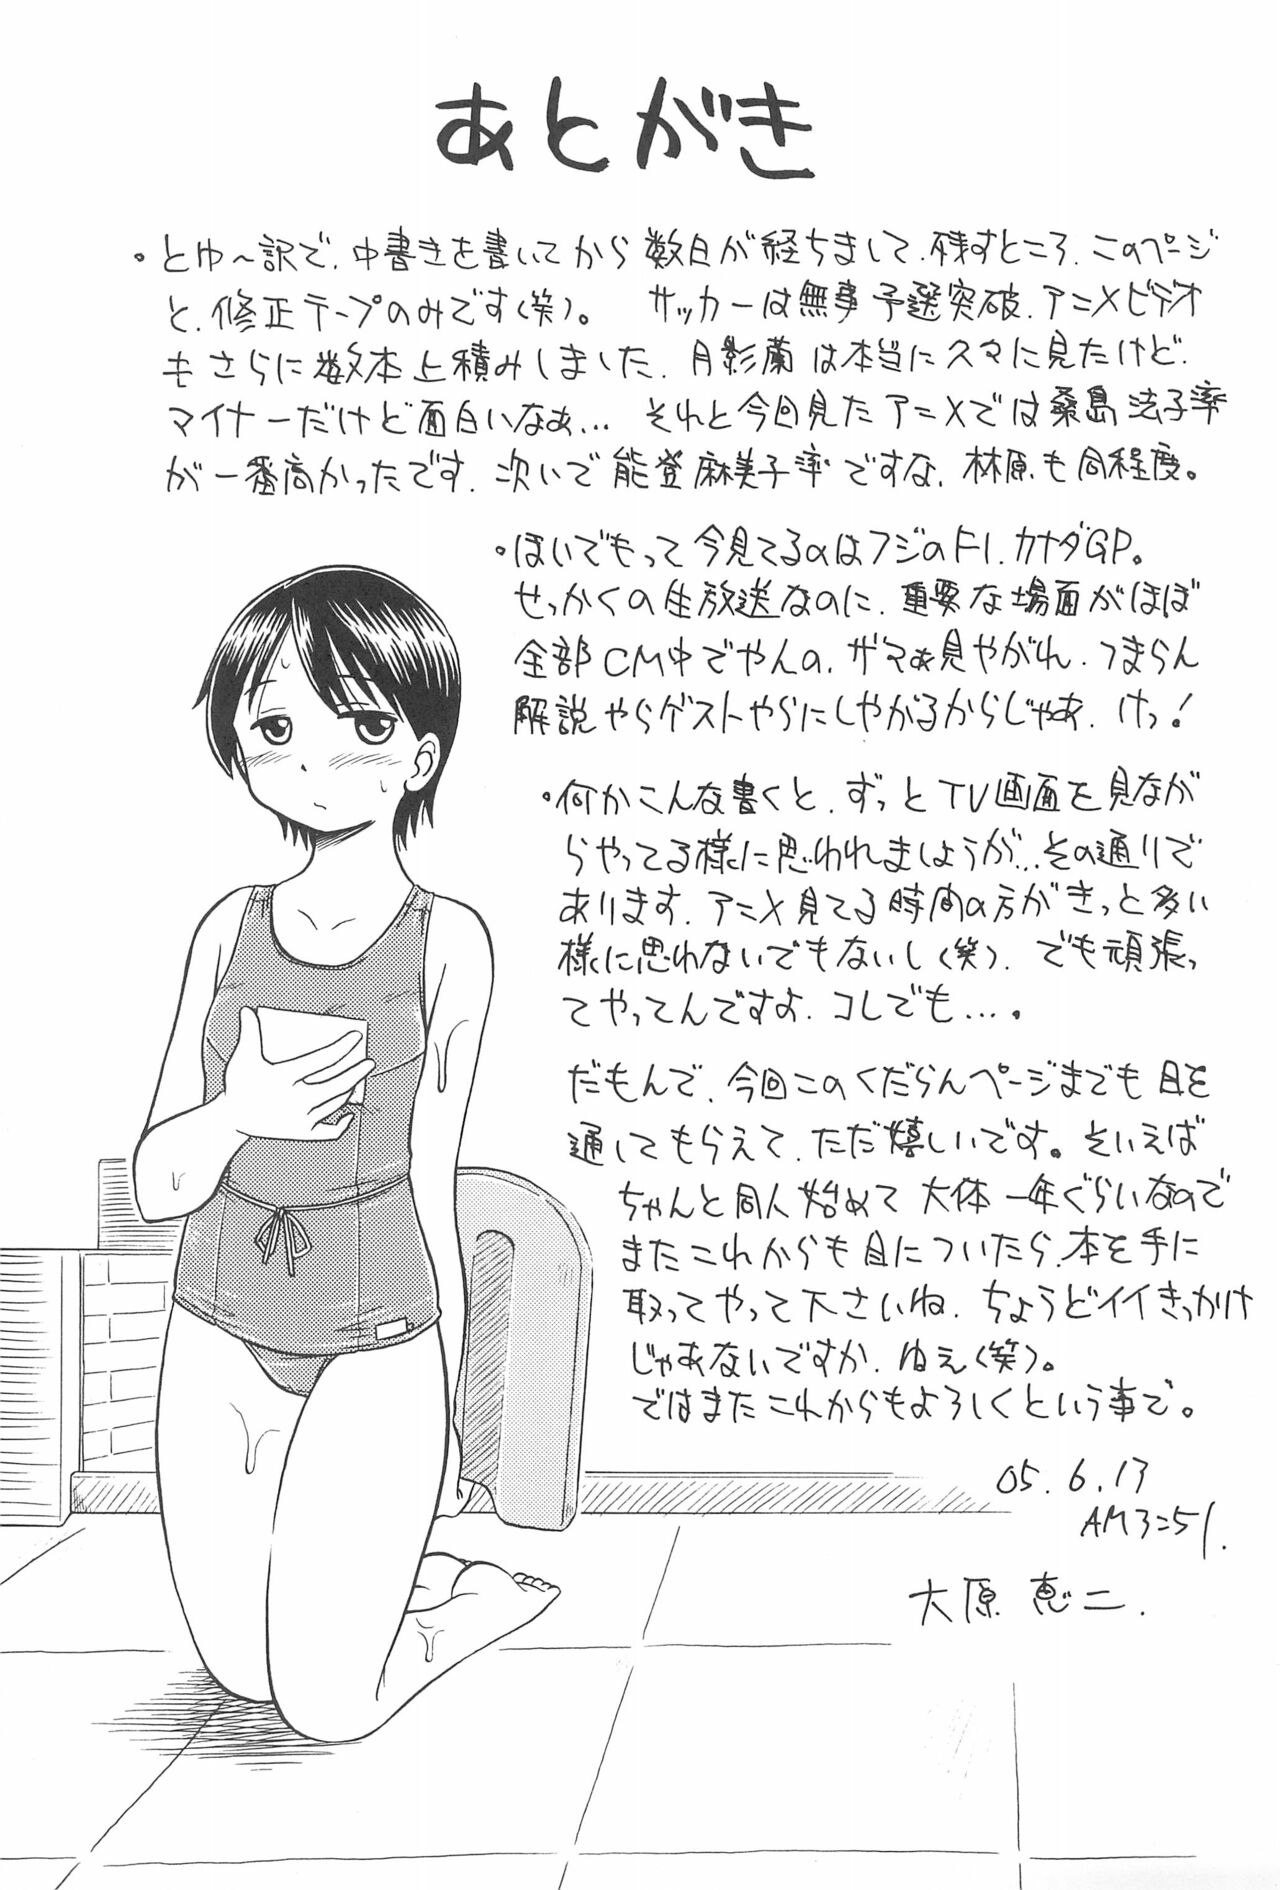 あとがき
・とゆ〜訳で、中書きを書いてから数日が経ちまして、残すところ、このページ
と、修正テープのみです(笑)。 サッカーは無事予選突破、アニメビデオ
もさらに数本上積みしました、月影蘭は本当に久々に見たけど、
マイナーだけど面白いなぁ… それと今回見たアニメでは桑島法子率
が一番高かったです、次いで能登麻美子率ですな、林原も同程度。
・ほいでもって今見てるのはフジのF1、カナダGP。
せっかくの生放送なのに、重要な場面がほぼ
全部CM中でやんの、ザマぁ見やがれ、つまらん
解説やらゲストやらにしやがるからじゃあ、けっ!
・何かこんな書くと、ずっとTV画面を見なが
らやってる様に思われましょうが…その通りで
あります、アニメ見てる時間の方がきっと多い
様に思わないでもないし(笑)、でも頑張っ
てやってんですよ、コレでも…。
だもんで、今回このくだらんページまでも目を
通してもらえて、ただ嬉しいです。そいえば
ちゃんと同人始めて大体一年ぐらいなので
またこれからも目についたら、本を手に
取ってやって下さいね、ちょうどイイきっかけ
じゃあないですか、ねえ(笑)。
ではまたこれからもよろしくという事で。
05.6.13
AM3=51.
大原恵二.